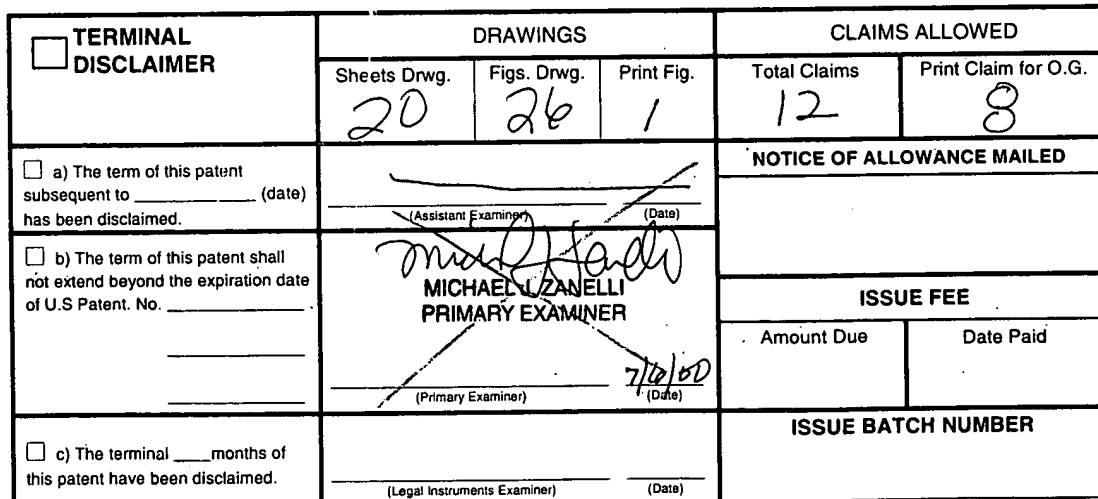 TERMINAL
DISCLAIMER
DRAWINGS
CLAIMS ALLOWED
Sheets Drwg.
Figs. Drwg.
Print Fig.
Total Claims
Print Claim for O.G.
20
26
1
12
8
a) The term of this patent
subsequent to ____________ (date)
has been disclaimed.
(Assistant Examiner)
(Date)
NOTICE OF ALLOWANCE MAILED
b) The term of this patent shall
not extend beyond the expiration date
of U.S Patent. No. ____________
MICHAEL J. ZANELLI
PRIMARY EXAMINER
(Primary Examiner)
(Date)
ISSUE FEE
Amount Due
Date Paid
c) The terminal ____months of
this patent have been disclaimed.
(Legal Instruments Examiner)
(Date)
ISSUE BATCH NUMBER